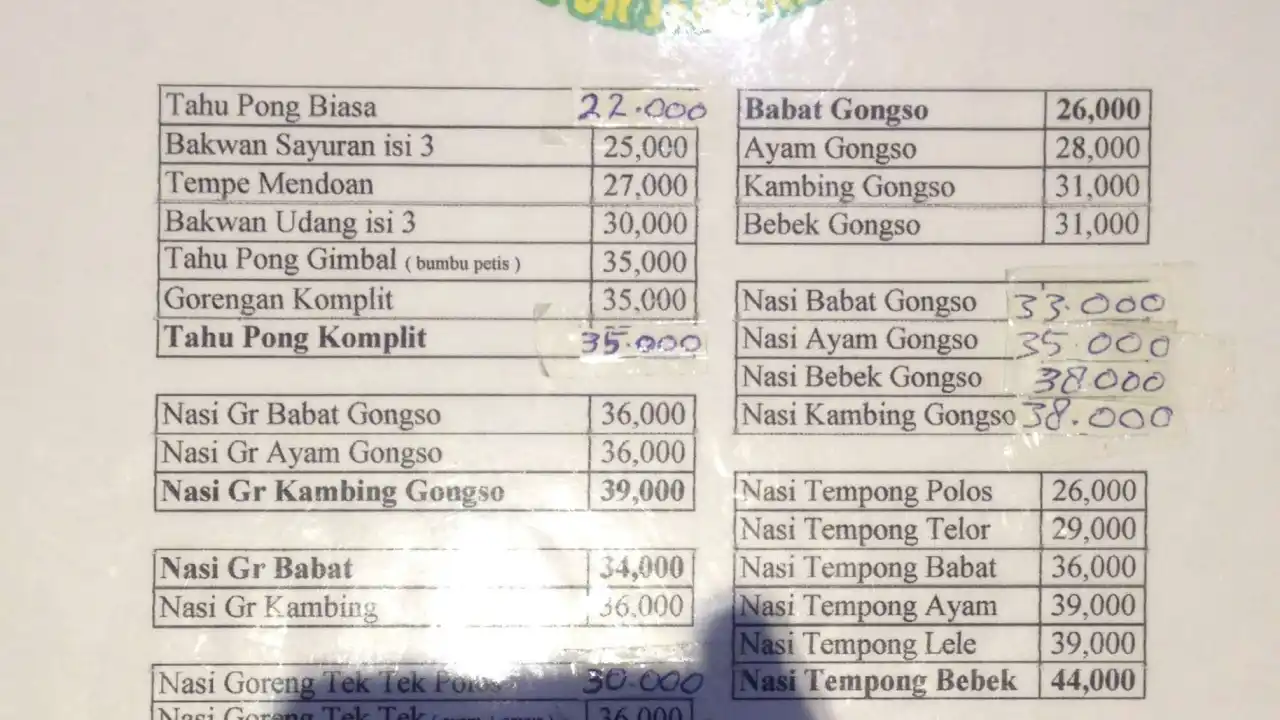 Tahu Pong Biasa 22.000
Bakwan Sayuran isi 3 25,000
Tempe Mendoan 27,000
Bakwan Udang isi 3 30,000
Tahu Pong Gimbal ( bumbu petis ) 35,000
Gorengan Komplit 35,000
Tahu Pong Komplit 35.000
Nasi Gr Babat Gongso 36,000
Nasi Gr Ayam Gongso 36,000
Nasi Gr Kambing Gongso 39,000
Nasi Gr Babat 34,000
Nasi Gr Kambing 36,000
Nasi Goreng Tek Tek Polos 30.000
Nasi Goreng Tek Tek 36,000
Babat Gongso 26,000
Ayam Gongso 28,000
Kambing Gongso 31,000
Bebek Gongso 31,000
Nasi Babat Gongso 33.000
Nasi Ayam Gongso 35.000
Nasi Bebek Gongso 38.000
Nasi Kambing Gongso 38.000
Nasi Tempong Polos 26,000
Nasi Tempong Telor 29,000
Nasi Tempong Babat 36,000
Nasi Tempong Ayam 39,000
Nasi Tempong Lele 39,000
Nasi Tempong Bebek 44,000